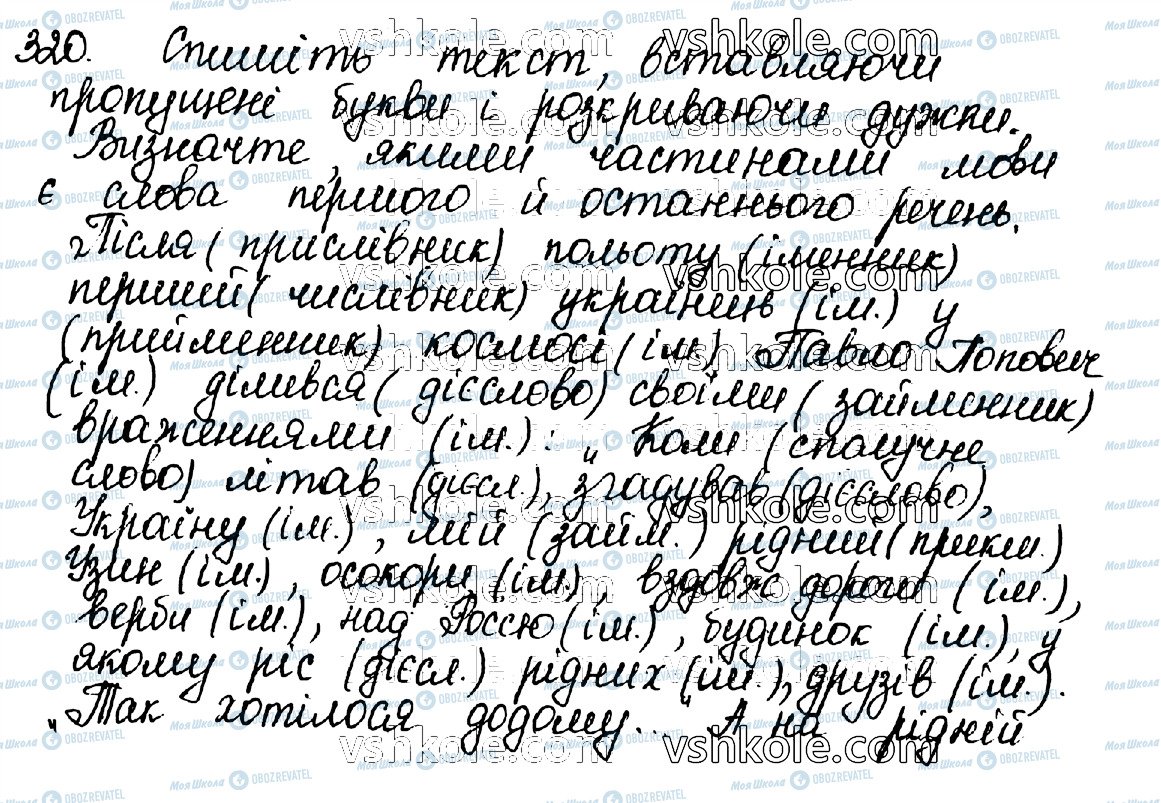 320. Спишіть текст, вставляючи
пропущені букви і розкриваючи дужки.
Визначте, якими частинами мови
є слова першого й останнього речень.
Після (прислівник) польоту (іменник)
перший (числівник) українець (ім.) у
(прийменник) космосі (ім.) Павло Попович
(ім.) ділився (дієслово) своїми (займенник)
враженнями (ім.): „Коли (сполучне
слово) літав (дієсл.), згадував (дієслово),
Україну (ім.), мій (займ.) рідний (прикм.)
Узин (ім.), осокори (ім.), вздовж дороги (ім.),
верби (ім.), над Россю (ім.), будинок (ім.), у
якому ріс (дієсл.) рідних (ім.), друзів (ім.).
„Так хотілося додому..." А на рідній
vshkole.com
Моя Школа OBOZREVATEL